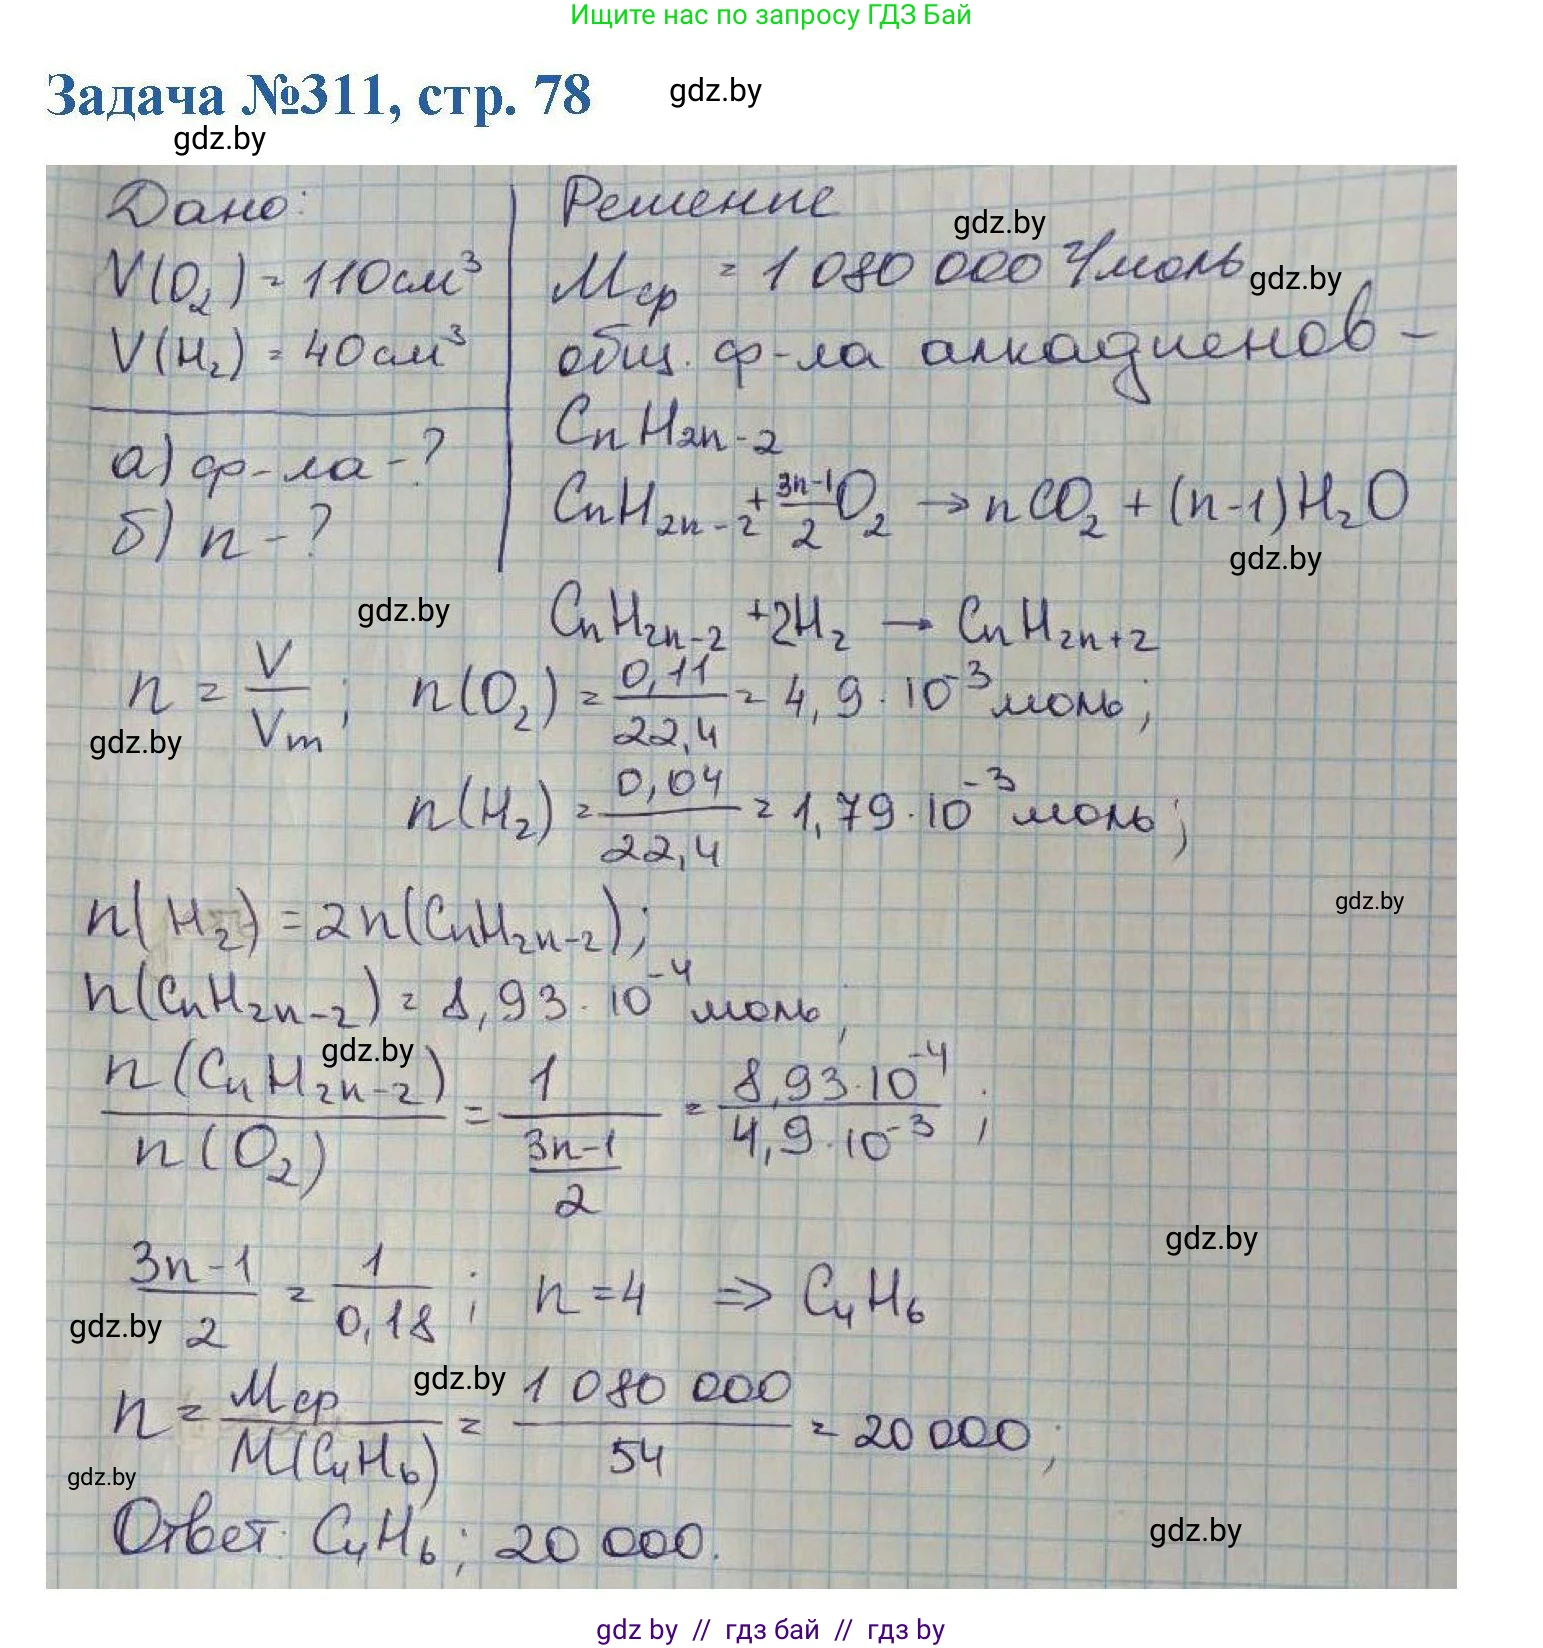 Ищите нас по запросу ГДЗ Бай
Задача №311, стр. 78
gdz.by
gdz.by
Дано:
V(O₂) = 110 см³
V(H₂) = 40 см³
а) ф-ла - ?
б) n - ?
Решение
gdz.by
Mср = 1 080 000 г/моль
gdz.by
общ. ф-ла алкадиенов -
CnH2n-2
CnH2n-2 + (3n-1)/2 O₂ → nCO₂ + (n-1)H₂O
gdz.by
gdz.by
CnH2n-2 + 2H₂ → CnH2n+2
n = V/Vm; n(O₂) = 0,11/22,4 = 4,9 · 10⁻³ моль;
gdz.by
n(H₂) = 0,04/22,4 = 1,79 · 10⁻³ моль;
gdz.by
n(H₂) = 2n(CnH2n-2);
n(CnH2n-2) = 8,93 · 10⁻⁴ моль;
gdz.by
n(CnH2n-2)/n(O₂) = 1/((3n-1)/2) = 8,93·10⁻⁴/4,9·10⁻³;
gdz.by
(3n-1)/2 = 1/0,18; n = 4 ⇒ C₄H₆
gdz.by
gdz.by
n = Mср/M(C₄H₆) = 1 080 000/54 = 20 000;
gdz.by
Ответ: C₄H₆; 20 000.
gdz.by
gdz by // гдз бай // гдз by